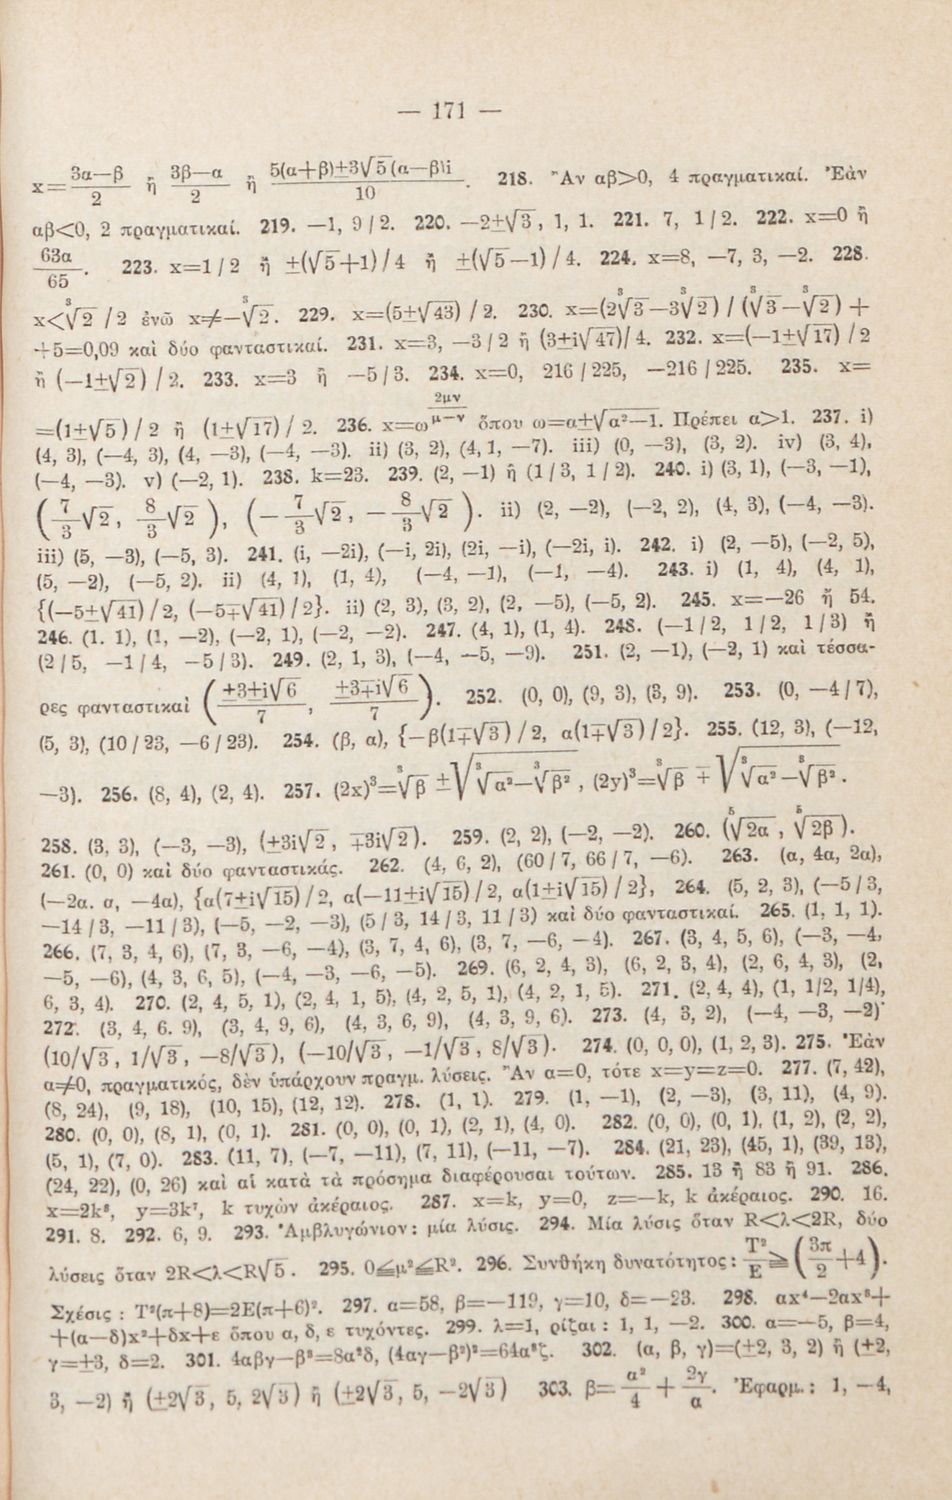 — 171 —
x=(3α—β)/2 ἢ (3β—α)/2 ἢ (5(α+β)±3√5(α—β)i)/10. 218. Ἂν αβ>0, 4 πραγματικαί. Ἐὰν
αβ<0, 2 πραγματικαί. 219. —1, 9/2. 220. —2±√3, 1, 1. 221. 7, 1/2. 222. x=0 ἢ
63α/65. 223. x=1/2 ἢ ±(√5+1)/4 ἢ ±(√5—1)/4. 224. x=8, —7, 3, —2. 228.
x<∛2/2 ἐνῶ x≠—∛2. 229. x=(5±√43)/2. 230. x=(2∛3—3∛2)/(∛3—∛2)+
+5=0,09 καὶ δύο φανταστικαί. 231. x=3, —3/2 ἢ (3±i√47)/4. 232. x=(—1±√17)/2
ἢ (—1±√2)/2. 233. x=3 ἢ —5/3. 234. x=0, 216/225, —216/225. 235. x=
=(1±√5)/2 ἢ (1±√17)/2. 236. x=ω^(2μν/(μ—ν)) ὅπου ω=α±√α²—1. Πρέπει α>1. 237. i)
(4, 3), (—4, 3), (4, —3), (—4, —3). ii) (3, 2), (4,1, —7). iii) (0, —3), (3, 2). iv) (3, 4),
(—4, —3). v) (—2, 1). 238. k=23. 239. (2, —1) ἢ (1/3, 1/2). 240. i) (3, 1), (—3, —1),
(7/3 √2, 8/3 √2), (—7/3 √2, —8/3 √2). ii) (2, —2), (—2, 2), (4, 3), (—4, —3).
iii) (5, —3), (—5, 3). 241. (i, —2i), (—i, 2i), (2i, —i), (—2i, i). 242. i) (2, —5), (—2, 5),
(5, —2), (—5, 2). ii) (4, 1), (1, 4), (—4, —1), (—1, —4). 243. i) (1, 4), (4, 1),
{(—5±√41)/2, (—5∓√41)/2}. ii) (2, 3), (3, 2), (2, —5), (—5, 2). 245. x=—26 ἢ 54.
246. (1. 1), (1, —2), (—2, 1), (—2, —2). 247. (4, 1), (1, 4). 248. (—1/2, 1/2, 1/3) ἢ
(2/5, —1/4, —5/3). 249. (2, 1, 3), (—4, —5, —9). 251. (2, —1), (—2, 1) καὶ τέσσα-
ρες φανταστικαὶ ((±3±i√6)/7, (±3∓i√6)/7). 252. (0, 0), (9, 3), (3, 9). 253. (0, —4/7),
(5, 3), (10/23, —6/23). 254. (β, α), {—β(1∓√3)/2, α(1∓√3)/2}. 255. (12, 3), (—12,
—3). 256. (8, 4), (2, 4). 257. (2x)³=∛β ±√(∛α²—∛β²), (2y)³=∛β ∓ √(∛α²—∛β²).
258. (3, 3), (—3, —3), (±3i√2, ∓3i√2). 259. (2, 2), (—2, —2). 260. (⁵√2α, ⁵√2β).
261. (0, 0) καὶ δύο φανταστικάς. 262. (4, 6, 2), (60/7, 66/7, —6). 263. (α, 4α, 2α),
(—2α. α, —4α), {α(7±i√15)/2, α(—11±i√15)/2, α(1±i√15)/2}, 264. (5, 2, 3), (—5/3,
—14/3, —11/3), (—5, —2, —3), (5/3, 14/3, 11/3) καὶ δύο φανταστικαί. 265. (1, 1, 1).
266. (7, 3, 4, 6), (7, 3, —6, —4), (3, 7, 4, 6), (3, 7, —6, —4). 267. (3, 4, 5, 6), (—3, —4,
—5, —6), (4, 3, 6, 5), (—4, —3, —6, —5). 269. (6, 2, 4, 3), (6, 2, 3, 4), (2, 6, 4, 3), (2,
6, 3, 4). 270. (2, 4, 5, 1), (2, 4, 1, 5), (4, 2, 5, 1), (4, 2, 1, 5). 271. (2, 4, 4), (1, 1/2, 1/4),
272. (3, 4, 6. 9), (3, 4, 9, 6), (4, 3, 6, 9), (4, 3, 9, 6). 273. (4, 3, 2), (—4, —3, —2)
(10/√3, 1/√3, —8/√3), (—10/√3, —1/√3, 8/√3). 274. (0, 0, 0), (1, 2, 3). 275. Ἐὰν
α≠0, πραγματικός, δὲν ὑπάρχουν πραγμ. λύσεις. Ἂν α=0, τότε x=y=z=0. 277. (7, 42),
(8, 24), (9, 18), (10, 15), (12, 12). 278. (1, 1). 279. (1, —1), (2, —3), (3, 11), (4, 9).
280. (0, 0), (8, 1), (0, 1). 281. (0, 0), (0, 1), (2, 1), (4, 0). 282. (0, 0), (0, 1), (1, 2), (2, 2),
(5, 1), (7, 0). 283. (11, 7), (—7, —11), (7, 11), (—11, —7). 284. (21, 23), (45, 1), (39, 13),
(24, 22), (0, 26) καὶ αἱ κατὰ τὰ πρόσημα διαφέρουσαι τούτων. 285. 13 ἢ 83 ἢ 91. 286.
x=2k⁸, y=3k⁷, k τυχὼν ἀκέραιος. 287. x=k, y=0, z=—k, k ἀκέραιος. 290. 16.
291. 8. 292. 6, 9. 293. Ἀμβλυγώνιον: μία λύσις. 294. Μία λύσις ὅταν R<λ<2R, δύο
λύσεις ὅταν 2R<λ<R√5. 295. 0≦μ²≦R². 296. Συνθήκη δυνατότητος: T²/E ≧ (3π/2+4).
Σχέσις : T²(π+8)=2E(π+6)². 297. α=58, β=—119, γ=10, δ=—23. 298. αx⁴—2αx³+
+(α—δ)x²+δx+ε ὅπου α, δ, ε τυχόντες. 299. λ=1, ρίζαι : 1, 1, —2. 300. α=—5, β=4,
γ=±3, δ=2. 301. 4αβγ—β³=8α²δ, (4αγ—β²)²=64α³ζ. 302. (α, β, γ)=(±2, 3, 2) ἢ (±2,
3, —2) ἢ (±2√3, 5, 2√3) ἢ (±2√3, 5, —2√3) 303. β=α²/4 + 2γ/α. Ἐφαρμ.: 1, —4,